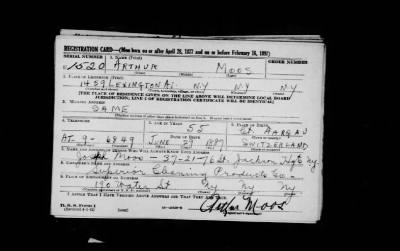 REGISTRATION CARD—(Men born on or after April 28, 1877 and on or before February 16, 1897)
SERIAL NUMBER 1. NAME (Print) ORDER NUMBER
U 1520 ARTHUR MOOS
2. PLACE OF RESIDENCE (Print)
1459 LEXINGTON AV. N.Y N.Y N.Y
[THE PLACE OF RESIDENCE GIVEN ON THE LINE ABOVE WILL DETERMINE LOCAL BOARD
JURISDICTION; LINE 2 OF REGISTRATION CERTIFICATE WILL BE IDENTICAL]
3. MAILING ADDRESS
SAME
4. TELEPHONE 5. AGE IN YEARS 6. PLACE OF BIRTH
55 Ct. AARGAU
DATE OF BIRTH
AT-9- 6949 JUNE 27 1887 SWITZERLAND
7. NAME AND ADDRESS OF PERSON WHO WILL ALWAYS KNOW YOUR ADDRESS
Joseph Moos - 37-21-76 St. Jackson Hgts Ny
8. EMPLOYER'S NAME AND ADDRESS
Superior Cleaning Products Co-
9. PLACE OF EMPLOYMENT OR BUSINESS
190 Water St Ny Ny Ny
I AFFIRM THAT I HAVE VERIFIED ABOVE ANSWERS AND THAT THEY ARE TRUE.
D. S. S. Form 1
Arthur Moos